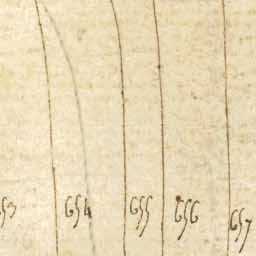 653 654 655 656 657